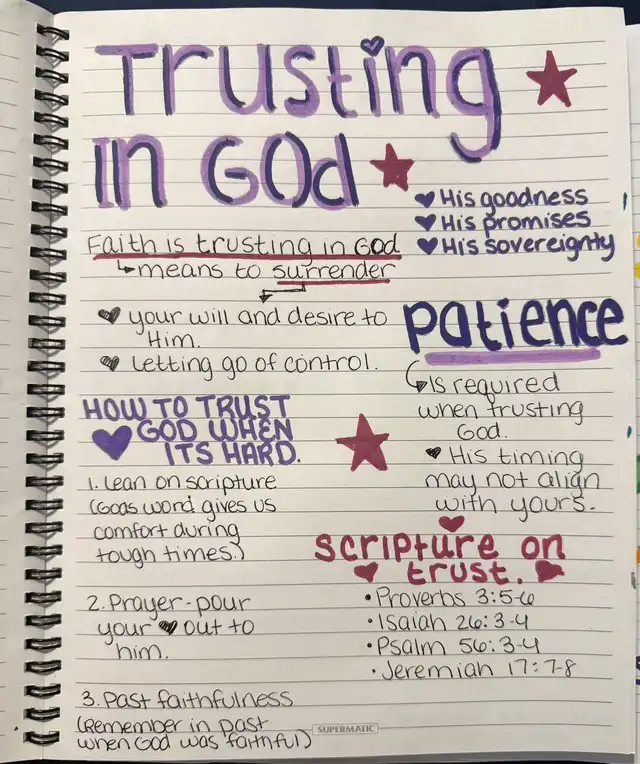 Trusting
in God
His goodness
His promises
His sovereignty
Faith is trusting in God
means to surrender
your will and desire to
Him.
Letting go of control.
patience
Is required
when trusting
God.
His timing
may not align
with yours.
HOW TO TRUST
GOD WHEN
ITS HARD.
1. Lean on scripture
(Gods word gives us
comfort during
tough times.)
2. Prayer-pour
your ♥ out to
him.
3. Past faithfulness
(Remember in past
when God was faithful)
Scripture on
trust.
• Proverbs 3:5-6
• Isaiah 26:3-4
• Psalm 56:3-4
• Jeremiah 17:7-8
SUPERMATIC